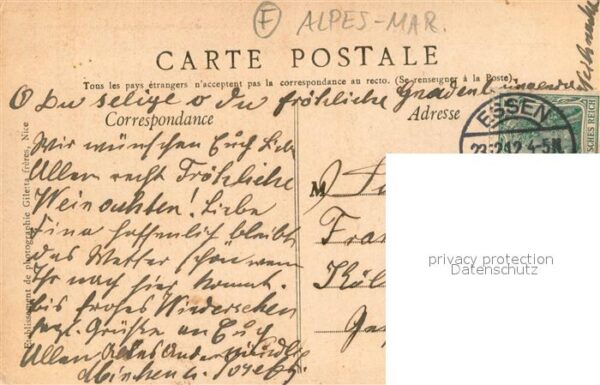 F ALPES-MAR.
CARTE POSTALE
Tous les pays étrangers n'acceptent pas la correspondance au recto. (Se renseigner à la Poste).
O Du selige o du fröhliche Gnadenbringende
Weihnacht
Correspondance
Adresse
ESSEN
23.12.12. 4-5N
DEUTSCHES REICH
Etablissement de photographie Giletta frères, Nice
Wir wünschen Euch Lieb
Allen recht Fröhliche
Weinachten! Liebe
Fina hoffentlich bleibt
das Wetter schön wenn
Ihr nach hier kommt.
bis frohes Wiedersehen
Grüße an Euch
Allen Alles Andere mündlich
M
Fra
Köl
privacy protection
Datenschutz